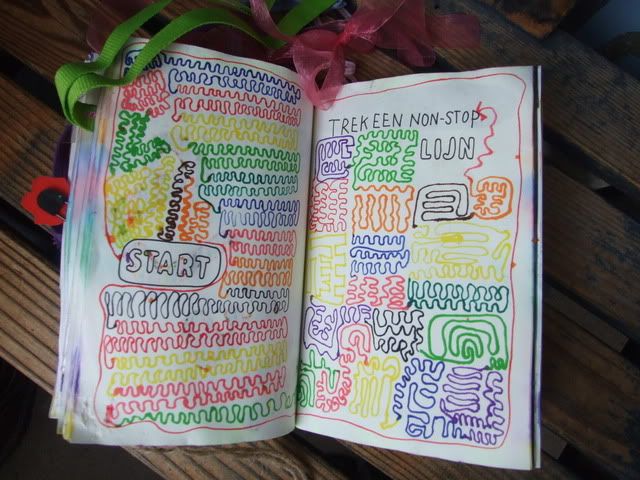 START
TREK EEN NON-STOP
LIJN